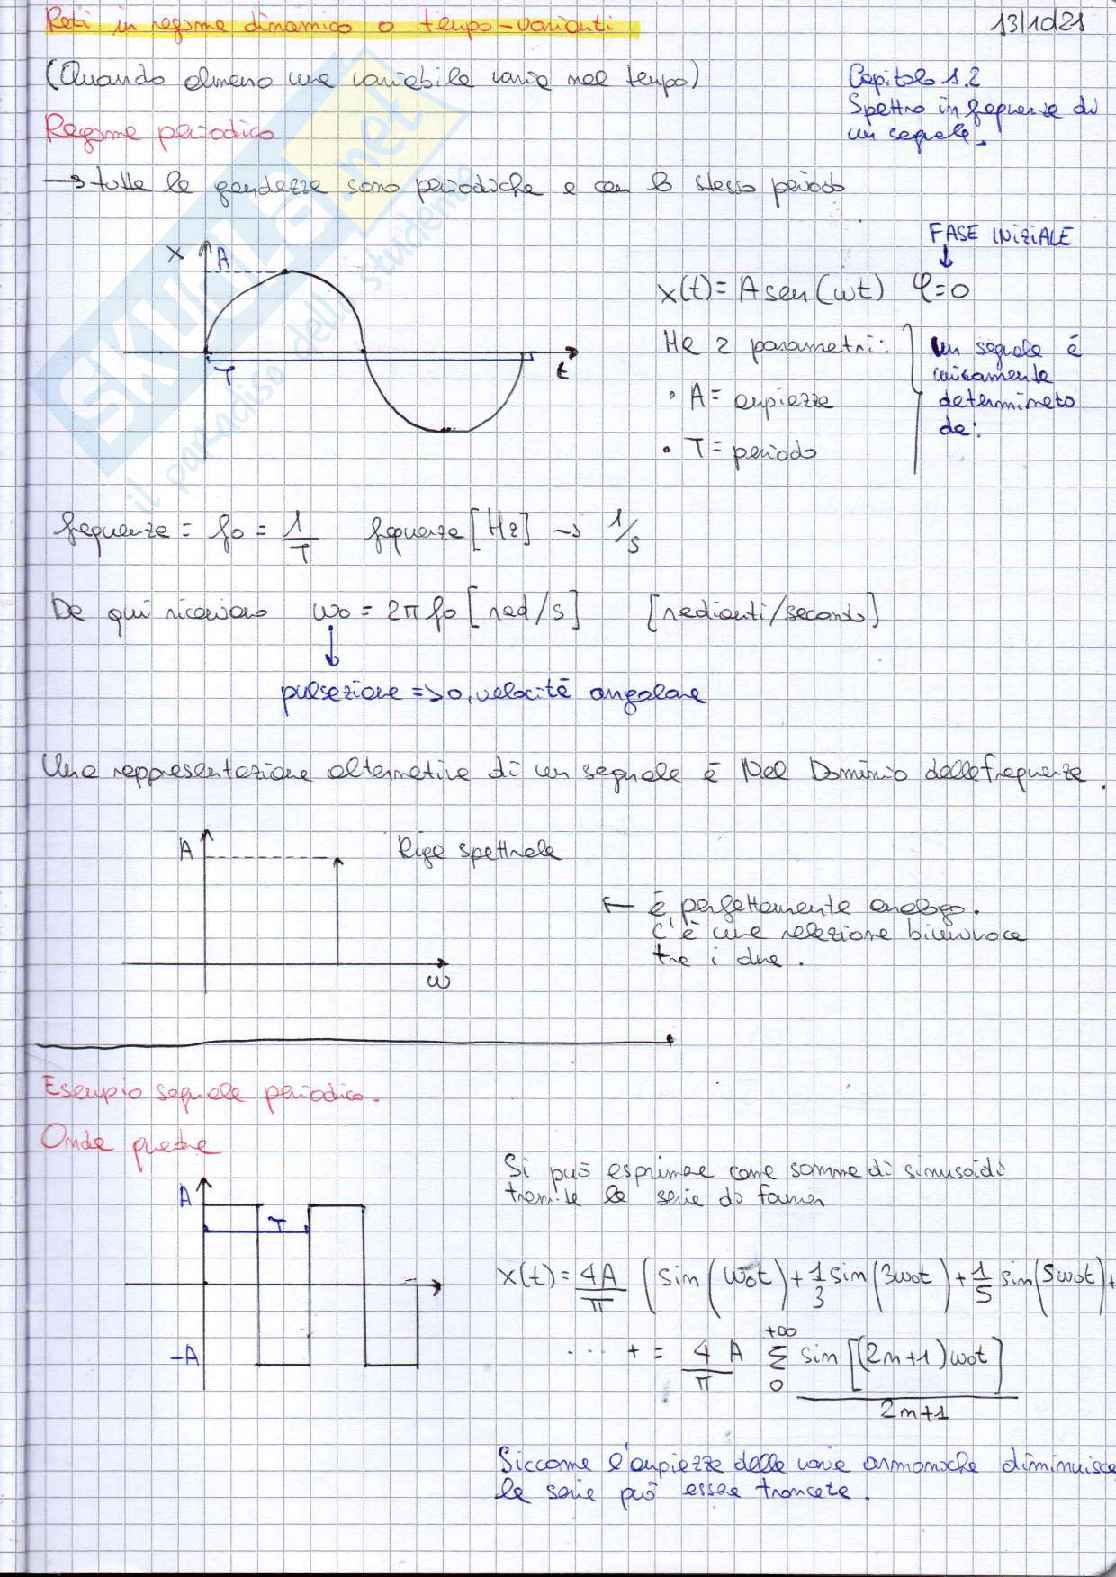 Reti in regime dinamico o tempo-varianti
13/10/21
(Quando almeno una variabile varia nel tempo)
Capitolo 1.2
Spettro in frequenza di
un segnale.
Regime periodico
→ tutte le grandezze sono periodiche e con lo stesso periodo
FASE INIZIALE
x A
x(t) = A sen(ωt) φ=0
T t
Ha 2 parametri:
• A = ampiezza
• T = periodo
un segnale è
unicamente
determinato
da:
frequenza = f0 = 1/T frequenza [Hz] → 1/s
Da qui ricaviamo ω0 = 2π f0 [rad/s] [radianti/secondo]
pulsazione => o velocità angolare
Una rappresentazione alternativa di un segnale è Nel Dominio delle frequenze.
A Riga spettrale
ω
← è perfettamente analogo.
C'è una relazione biunivoca
tra i due.
Esempio segnale periodico.
Onda quadra
A
T
-A
Si può esprimere come somma di sinusoidi
tramite la serie di Fourier
x(t) = 4A/π (sin(ω0t) + 1/3 sin(3ω0t) + 1/5 sin(5ω0t) +
... + = 4/π A Σ +∞ 0 sin[(2n+1)ω0t] / 2n+1
Siccome l'ampiezza delle varie armoniche diminuisce
la serie può essere troncata.
SKUOLA.net
il paradiso dello studente